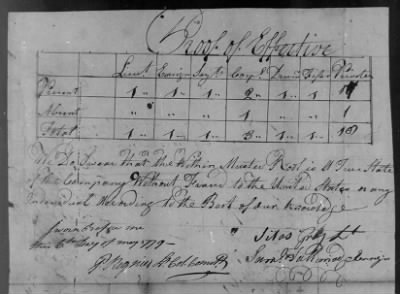 Proof of Effective
Lieut Ensign Sergts Corpl Drum Fifer Privates
Present 1 " 1 " 1 " 2 " 1 " 1 "
Absent " " " 1 " " 1
Total 1 " 1 " 1 " 3 " 1 " 1 "
We Do Swear that the within Muster Roll is a True State
of the Company Without Fraud to the United States or any
Individual According to the Best of our knowledge
Sworn before me
this 6th Day of may 1779 —
P. Regnier Lt Col Comdt
Titos